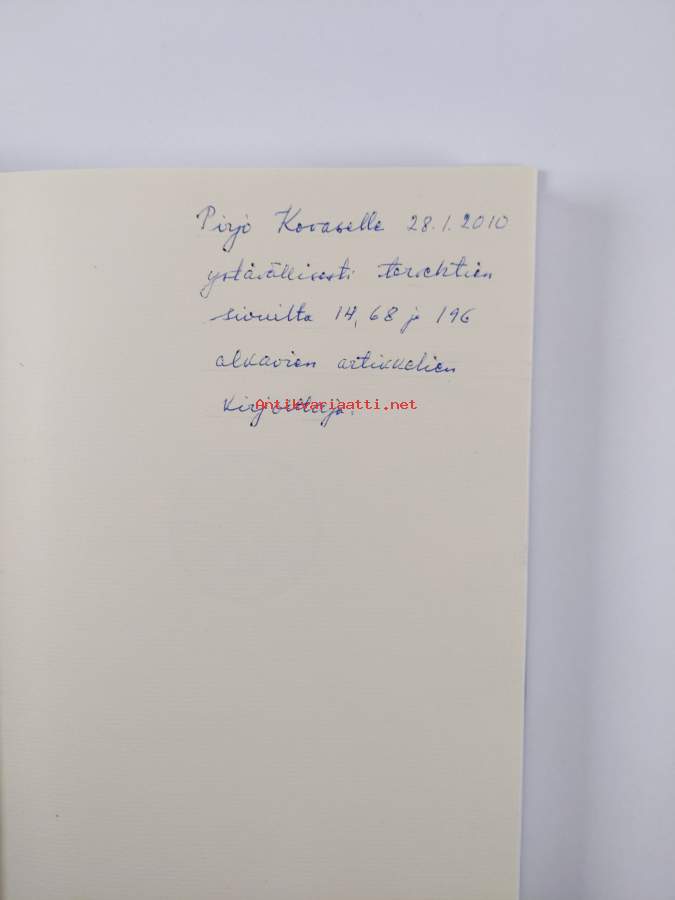 Pirjo Kovaselle 28.1.2010
ystävällisesti tervehtien
sivuilta 14, 68 ja 196
alkavien artikkelien
kirjoittaja.
Antiktariaatti.net